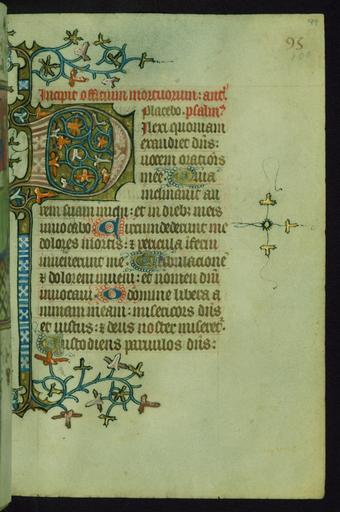 95
Incipit officium mortuorum: ant.
Placebo. psalm
Dilexi quoniam
exaudiet dns:
vocem orationis
mee. Quia
inclinavit au
rem suam michi: et in dieb; meis
invocabo Circumdederunt me
dolores mortis: et pericula iferni
invenerunt me Tribulatione
et dolorem inveni: et nomen dni
invocavi. O domine libera a
nimam meam: misericors dns
et iustus: et deus noster miseret.
Custodiens parvulos dns: